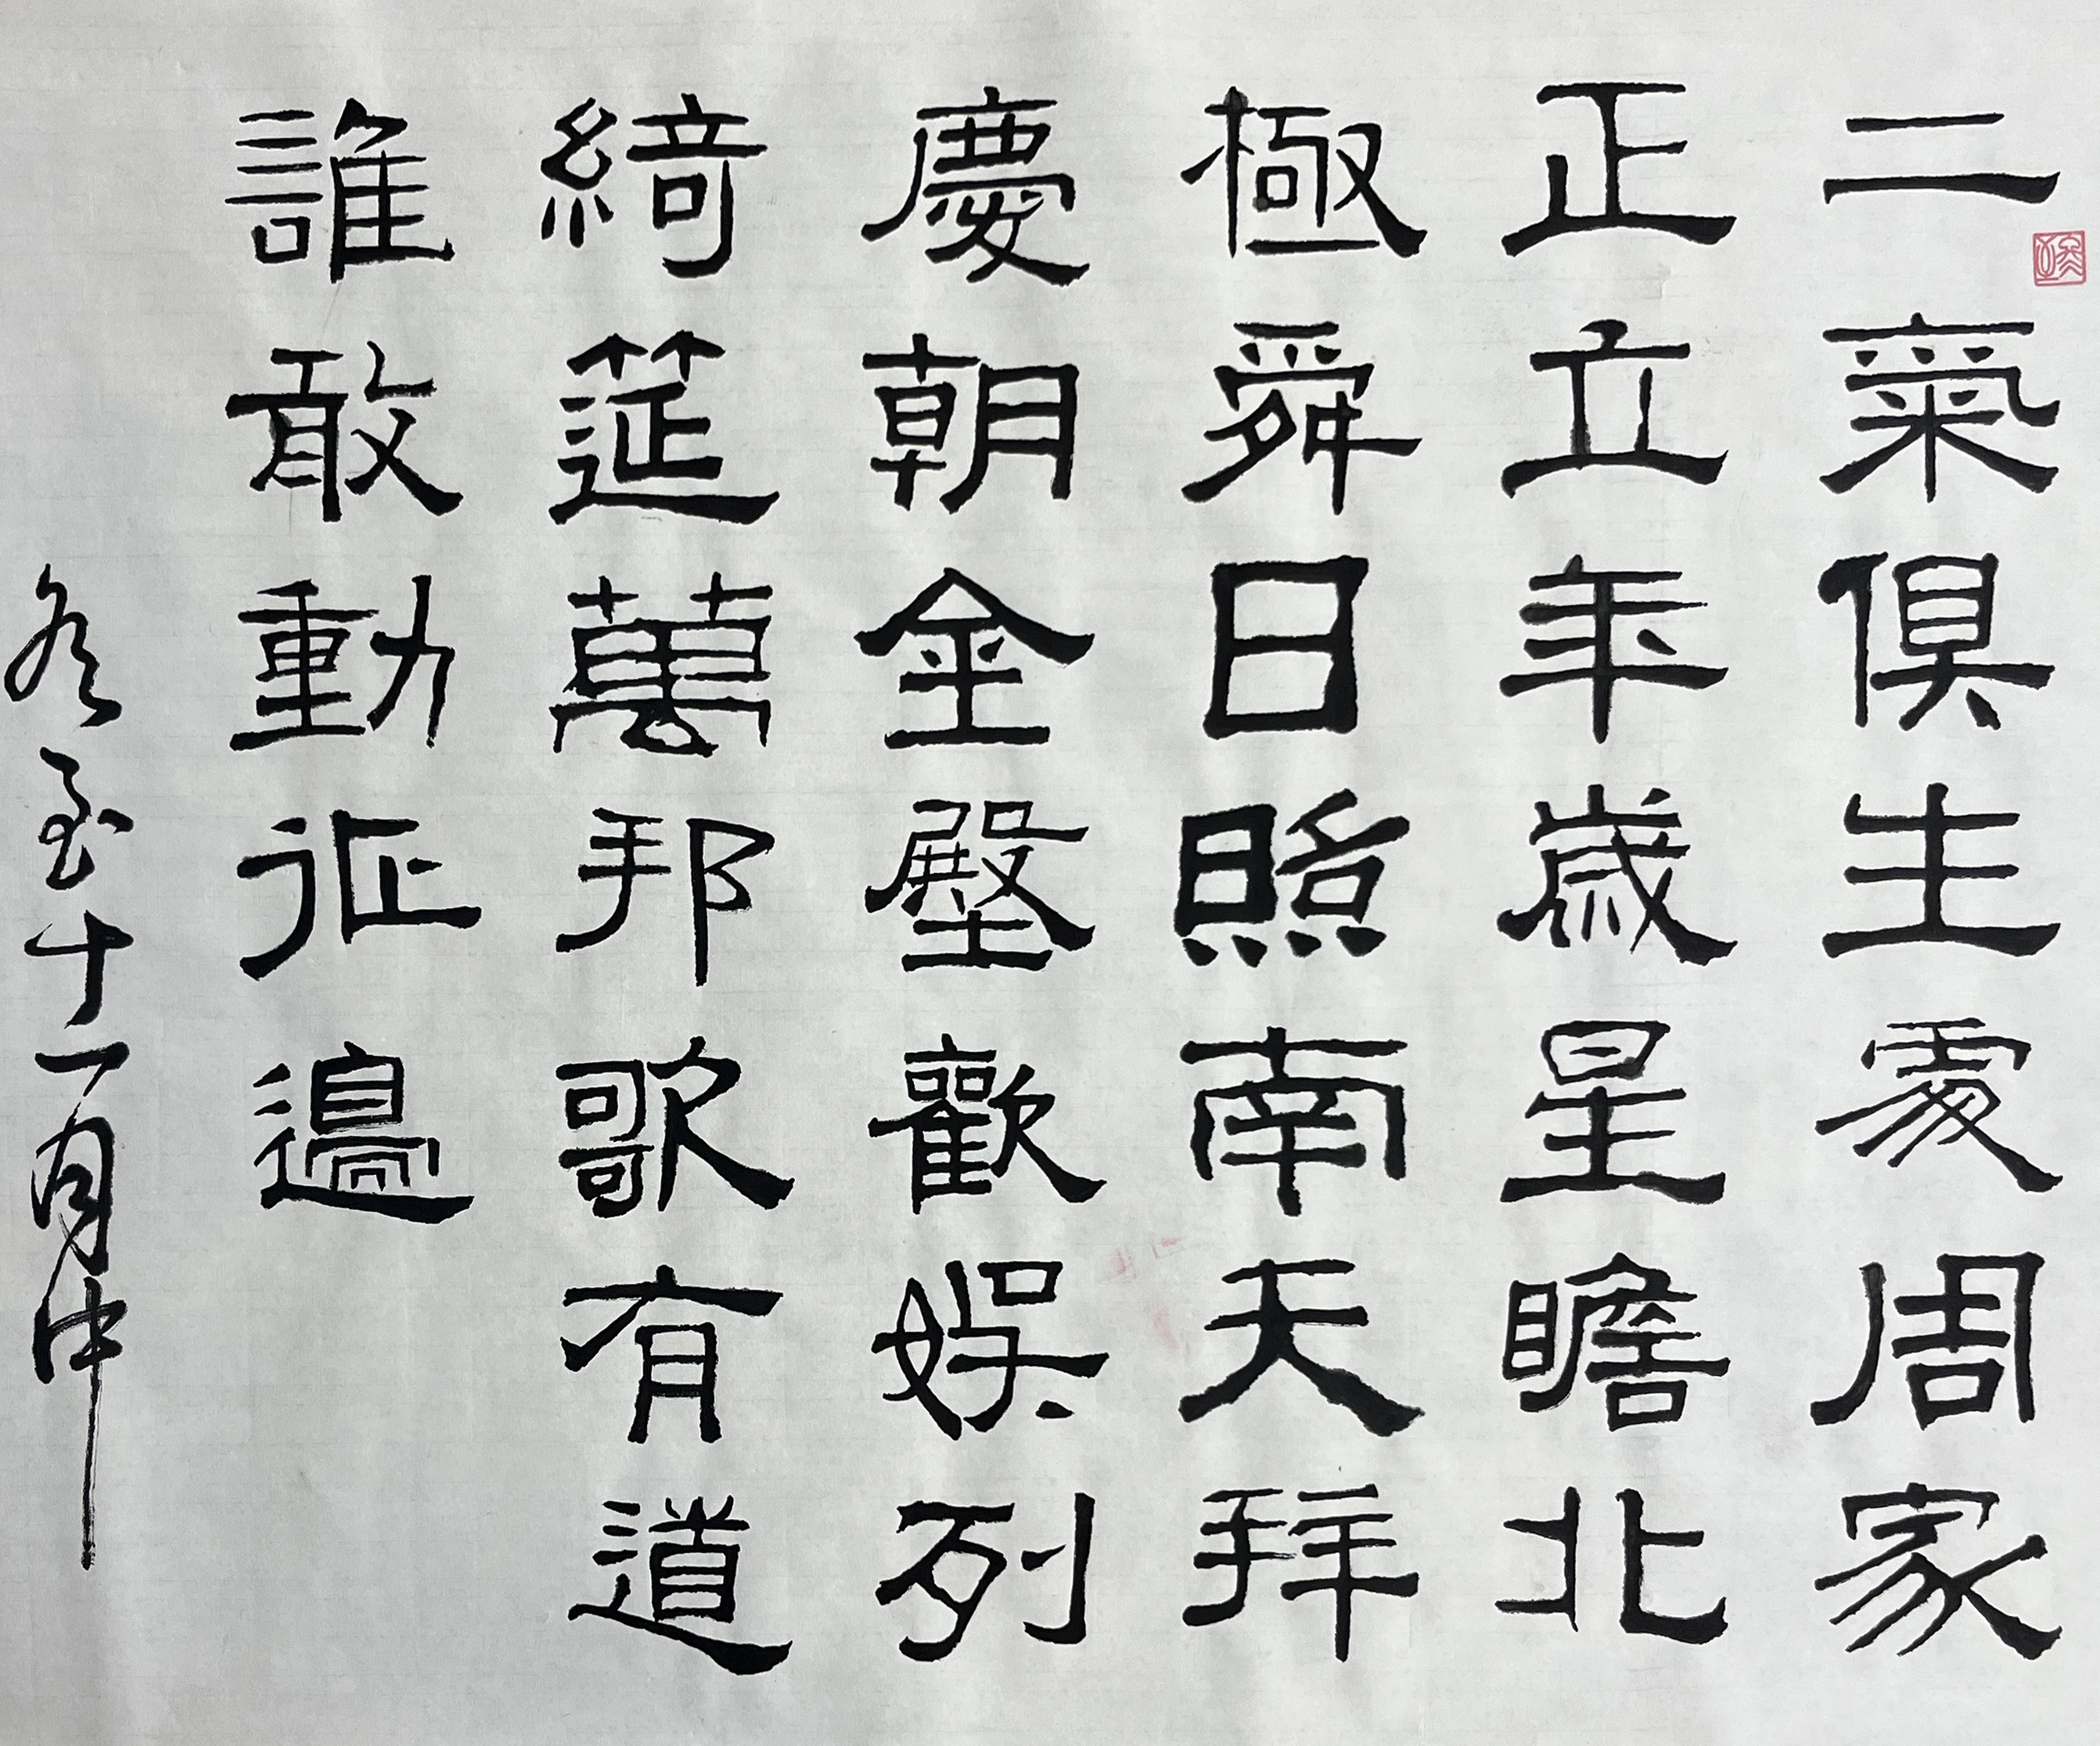 二氣俱生處周家
正立年歲星瞻北
極舜日照南天拜
慶朝金殿歡娛列
綺筵萬邦歌有道
誰敢動征邊
冬至十一月中